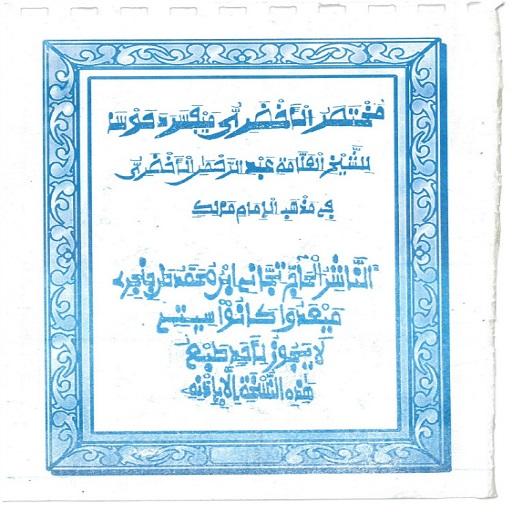 مختصر الأخضري ميفسر د هوسا
للشيخ العلامة عبد الرحمن الأخضري
في مذهب الإمام مالك
الناشر الحاج تجاني ابن محمد
كانوا سيتي
لا يجوز لأحد طبع
هذه النسخة إلا بإذنه